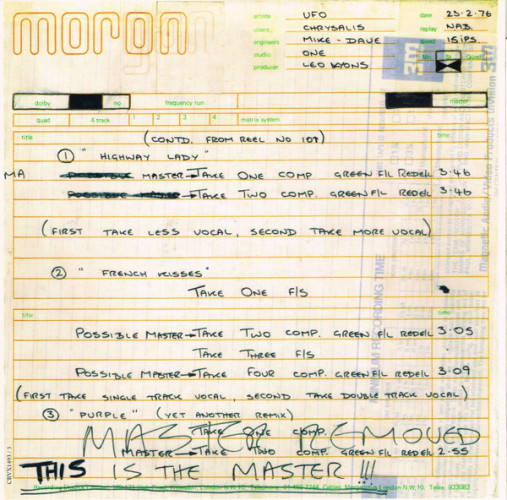 morgan
artiste UFO date 25-2-76
client CHRYSALIS replay NAB.
engineers MIKE - DAVE speed 15 IPS.
studio ONE Mn St. Quad
producer LEO LYONS
3M
dolby no frequency run master
quad 4 track 1 2 3 4 matrix system
title (CONTD. FROM REEL NO 107) time
① "HIGHWAY LADY"
MA MASTER→TAKE ONE COMP GREEN F/L RED E/L 3·46
POSSIBLE MASTER→TAKE TWO COMP. GREEN F/L RED E/L 3·46
(FIRST TAKE LESS VOCAL, SECOND TAKE MORE VOCAL)
② "FRENCH KISSES"
TAKE ONE F/S
title time
POSSIBLE MASTER→TAKE TWO COMP. GREEN F/L RED E/L 3·05
TAKE THREE F/S
POSSIBLE MASTER→TAKE FOUR COMP. GREEN F/L RED E/L 3·09
(FIRST TAKE SINGLE TRACK VOCAL, SECOND TAKE DOUBLE TRACK VOCAL)
③ "PURPLE" (YET ANOTHER REMIX)
TAKE ONE COMP.
MASTER REMOVED
MASTER→TAKE TWO COMP GREEN F/L RED E/L 2·55
THIS IS THE MASTER !!!
London N.W.10.
Magnetic Audio/Video Products Division 3M
MINIMUM RECORDING TIME